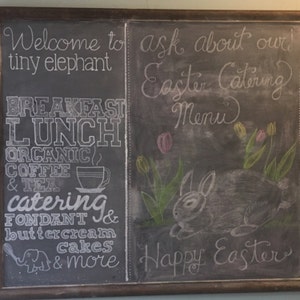 Welcome to
tiny elephant
BREAKFAST
LUNCH
ORGANIC
COFFEE
& TEA
catering
FONDANT &
buttercream
cakes
& more
ask about our
Easter Catering
Menu
Happy Easter